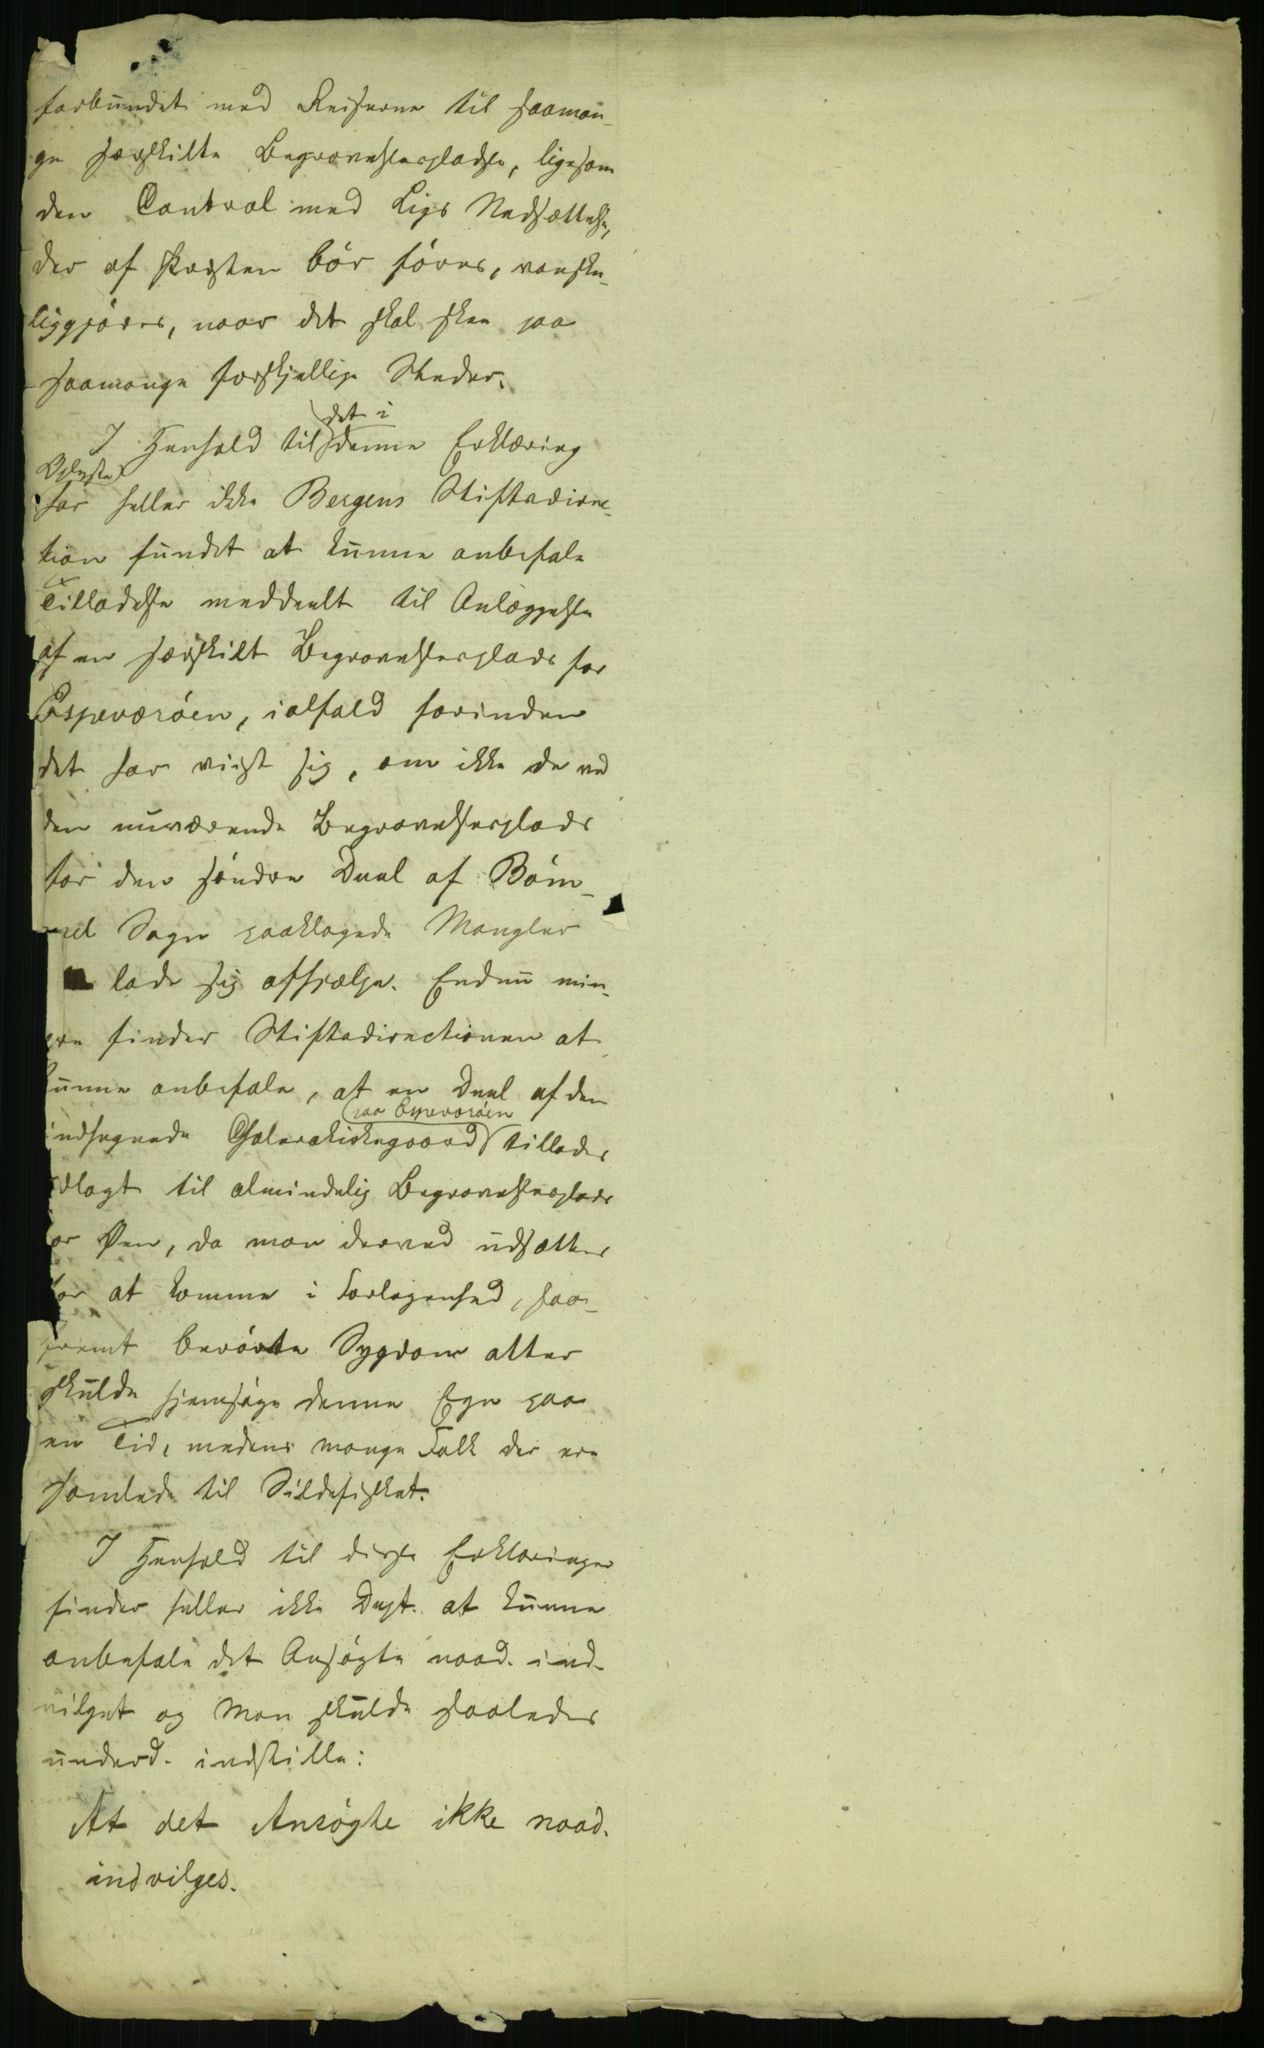 forbundet med Reiserne til saaman-
ge særskilte Begravelsespladse, ligesom
den Control med Ligs Nedsættelse,
der af Præsten bör föres, vanske-
liggjöres, naar det skal skee paa
saamange forskjellige Steder.
det i
I Henhold til denne Erklæring
Oplyste
har heller ikke Bergens Stiftsdirec-
tion fundet at kunne anbefale
Tilladelse meddeelt til Anlæggelse
af en særskilt Begravelsesplads for
Espeværöen, ialfald forinden
det har viist sig, om ikke de ved
den nuværende Begravelsesplads
for den söndre Deel af Böm-
mel Sogn paaklagede Mangler
lade sig afhjælpe. Endnu min-
dre finder Stiftsdirectionen at
kunne anbefale, at en Deel af den
paa Espeværöen
indhegnede Cholerakirkegaard tillades
udlagt til almindelig Begravelsesplads
for Öen, da man derved udsættes
for at komme i Forlegenhed, saa-
fremt berörte Sygdom atter
skulde hjemsöge denne Egn paa
en Tid, medens mange Folk der ere
samlede til Sildefisket.
I Henhold til disse Erklæringer
finder heller ikke Dept. at kunne
anbefale det Ansögte naad. ind-
vilget og man skulde saaledes
underd. indstille:
At det Ansögte ikke naad.
indvilges.